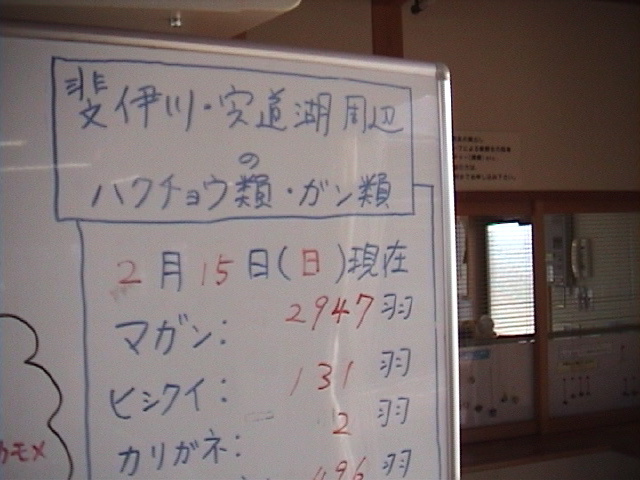 斐伊川・宍道湖周辺
の
ハクチョウ類・ガン類
2月15日(日)現在
マガン: 2947羽
ヒシクイ: 131羽
カリガネ: 2羽
196羽
カモメ